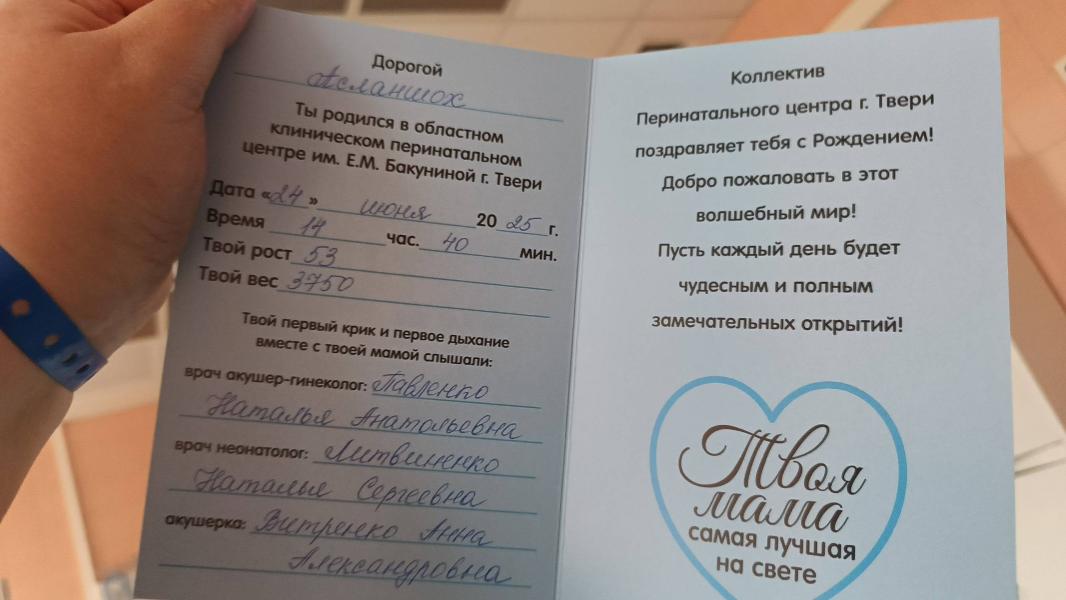 Дорогой
Асланшох
Ты родился в областном
клиническом перинатальном
центре им. Е.М. Бакуниной г. Твери
Дата «24» июня 2025 г.
Время 14 час. 40 мин.
Твой рост 53
Твой вес 3750
Твой первый крик и первое дыхание
вместе с твоей мамой слышали:
врач акушер-гинеколог: Павленко
Наталья Анатольевна
врач неонатолог: Литвиненко
Наталья Сергеевна
акушерка: Витренко Анна
Александровна
Коллектив
Перинатального центра г. Твери
поздравляет тебя с Рождением!
Добро пожаловать в этот
волшебный мир!
Пусть каждый день будет
чудесным и полным
замечательных открытий!
Твоя
мама
самая лучшая
на свете